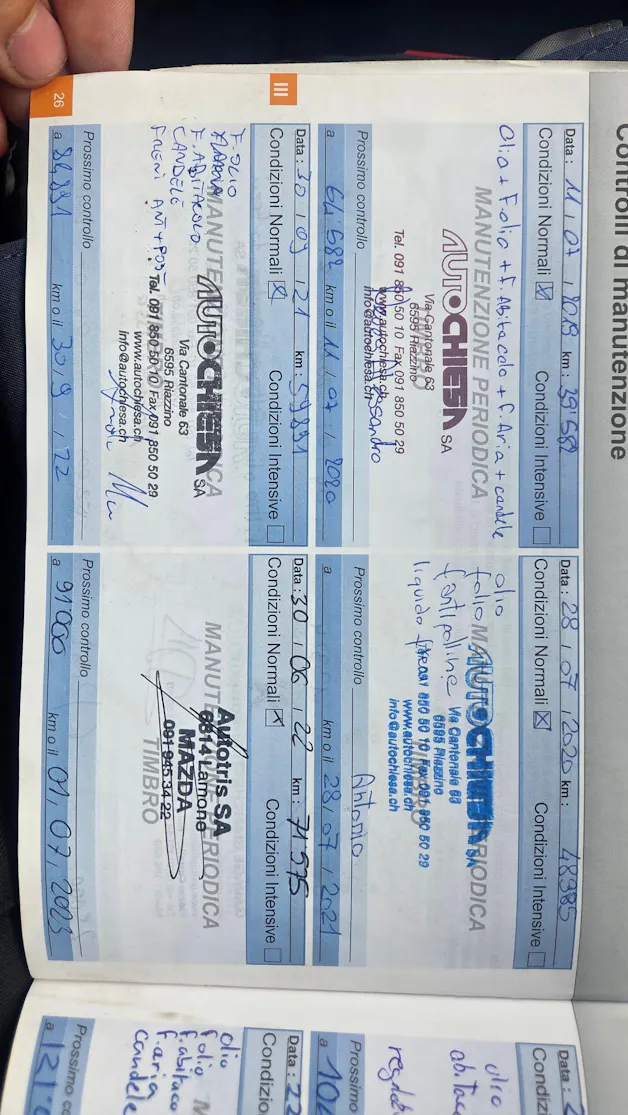 Controlli di manutenzione
Data: 11, 07, 2019 km: 39'582
Condizioni Normali Condizioni Intensive
Olio + F.olio + F. Abitacolo + F. Aria + candele
MANUTENZIONE PERIODICA
AUTOCHIESA SA
Via Cantonale 63
6595 Riazzino
Tel. 091 850 50 10 Fax 091 850 50 29
www.autochiesa.ch
info@autochiesa.ch
Prossimo controllo
a 64'582 km o il 11, 07, 2020
Data: 28, 07, 2020 km: 48985
Condizioni Normali Condizioni Intensive
olio
folio
fantipolline
liquido
MANUTENZIONE PERIODICA
AUTOCHIESA SA
Via Cantonale 63
6595 Riazzino
Tel. 091 850 50 10 Fax 091 850 50 29
www.autochiesa.ch
info@autochiesa.ch
Antonio
Prossimo controllo
a km o il 28, 07, 2021
III
Data: 30, 09, 21 km: 59891
Condizioni Normali Condizioni Intensive
F. OLIO
F. ABITACOLO
CANDELE
FRENI ANT + POST
MANUTENZIONE PERIODICA
AUTOCHIESA SA
Via Cantonale 63
6595 Riazzino
Tel. 091 850 50 10 Fax 091 850 50 29
www.autochiesa.ch
info@autochiesa.ch
Prossimo controllo
a 84891 km o il 30, 9, 22
Data: 30, 06, 22 km: 71575
Condizioni Normali Condizioni Intensive
MANUTENZIONE PERIODICA
Autotris SA
6814 Lamone
MAZDA
091 945 34 22
TIMBRO
Prossimo controllo
a 91000 km o il 01, 07, 2023
26
Data:
Condiz
olio
Prossimo
a
Data: 22
Condizio
olio
folio
f.abitaco
f.aria
candele
Prossimo co
a